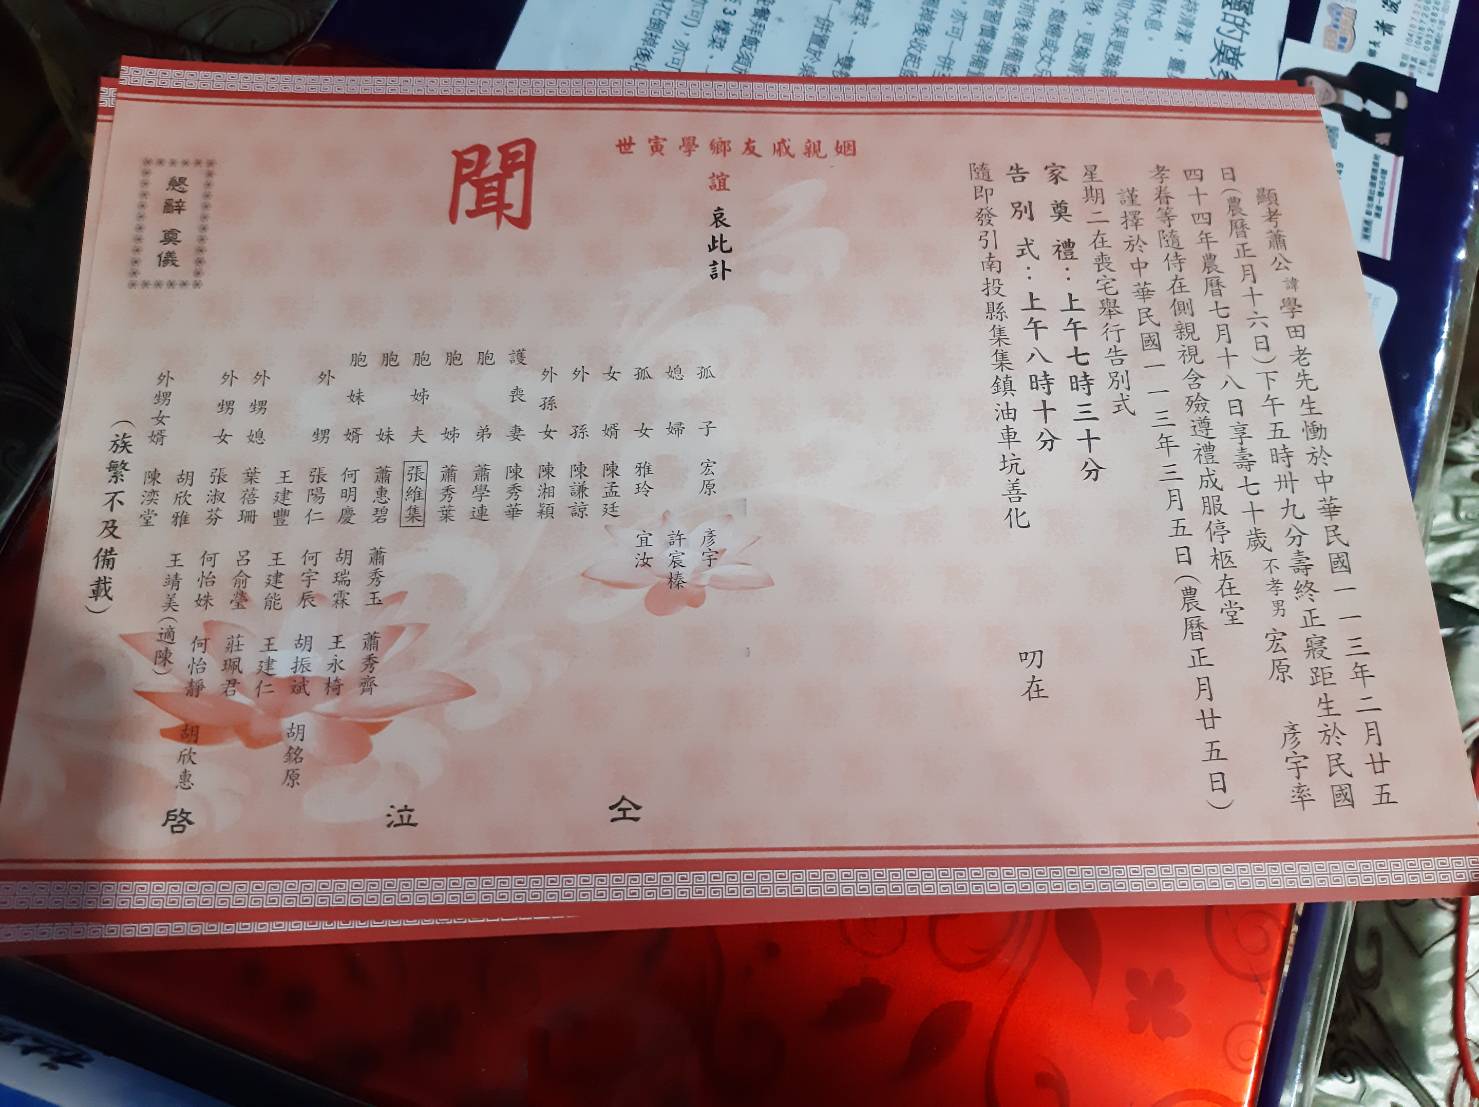 顯考蕭公諱學田老先生慟於中華民國一一三年二月廿五
日(農曆正月十六日)下午五時卅九分壽終正寢距生於民國
四十四年農曆七月十八日享壽七十歲不孝男宏原 彥宇率
孝眷等隨侍在側親視含殮遵禮成服停柩在堂
謹擇於中華民國一一三年三月五日(農曆正月廿五日)
星期二在喪宅舉行告別式
家奠禮：上午七時三十分
告別式：上午八時十分
隨即發引南投縣集集鎮油車坑善化
叨在
世寅學鄉友戚親姻
誼 哀此訃
聞
孤子 宏原 彥宇
媳婦 許宸榛
孤女 雅玲 宜汝
女婿 陳孟廷
外孫 陳謙諒
外孫女 陳湘穎
護喪妻 陳秀華
胞弟 蕭學連
胞姊 蕭秀葉
胞姊夫 張維集
胞妹 蕭惠碧 蕭秀玉 蕭秀齊
胞妹婿 何明慶 胡瑞霖 王永椅
外甥 張陽仁 何宇辰 胡振斌 胡銘原
王建豐 王建能 王建仁
外甥媳 葉蓓珊 呂俞瑩 莊珮君
外甥女 張淑芬 何怡姝 何怡靜 胡欣惠
胡欣雅 王靖美(適陳)
外甥女婿 陳滦堂
(族繁不及備載)
仝 泣 啓
懇辭 奠儀